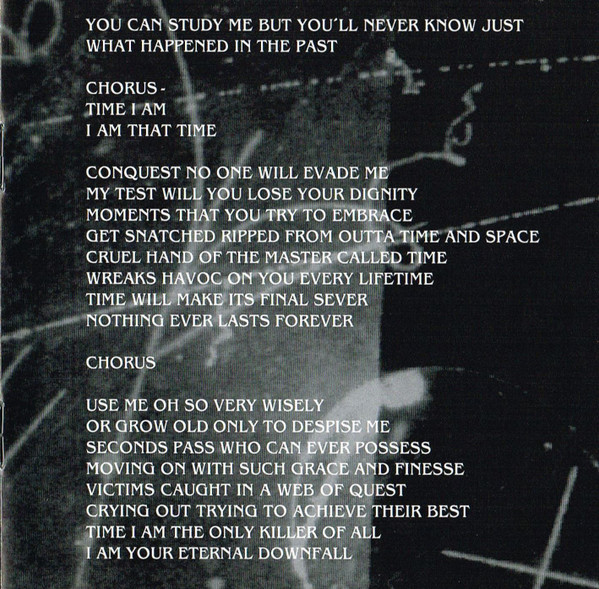 YOU CAN STUDY ME BUT YOU'LL NEVER KNOW JUST
WHAT HAPPENED IN THE PAST
CHORUS-
TIME I AM
I AM THAT TIME
CONQUEST NO ONE WILL EVADE ME
MY TEST WILL YOU LOSE YOUR DIGNITY
MOMENTS THAT YOU TRY TO EMBRACE
GET SNATCHED RIPPED FROM OUTTA TIME AND SPACE
CRUEL HAND OF THE MASTER CALLED TIME
WREAKS HAVOC ON YOU EVERY LIFETIME
TIME WILL MAKE ITS FINAL SEVER
NOTHING EVER LASTS FOREVER
CHORUS
USE ME OH SO VERY WISELY
OR GROW OLD ONLY TO DESPISE ME
SECONDS PASS WHO CAN EVER POSSESS
MOVING ON WITH SUCH GRACE AND FINESSE
VICTIMS CAUGHT IN A WEB OF QUEST
CRYING OUT TRYING TO ACHIEVE THEIR BEST
TIME I AM THE ONLY KILLER OF ALL
I AM YOUR ETERNAL DOWNFALL